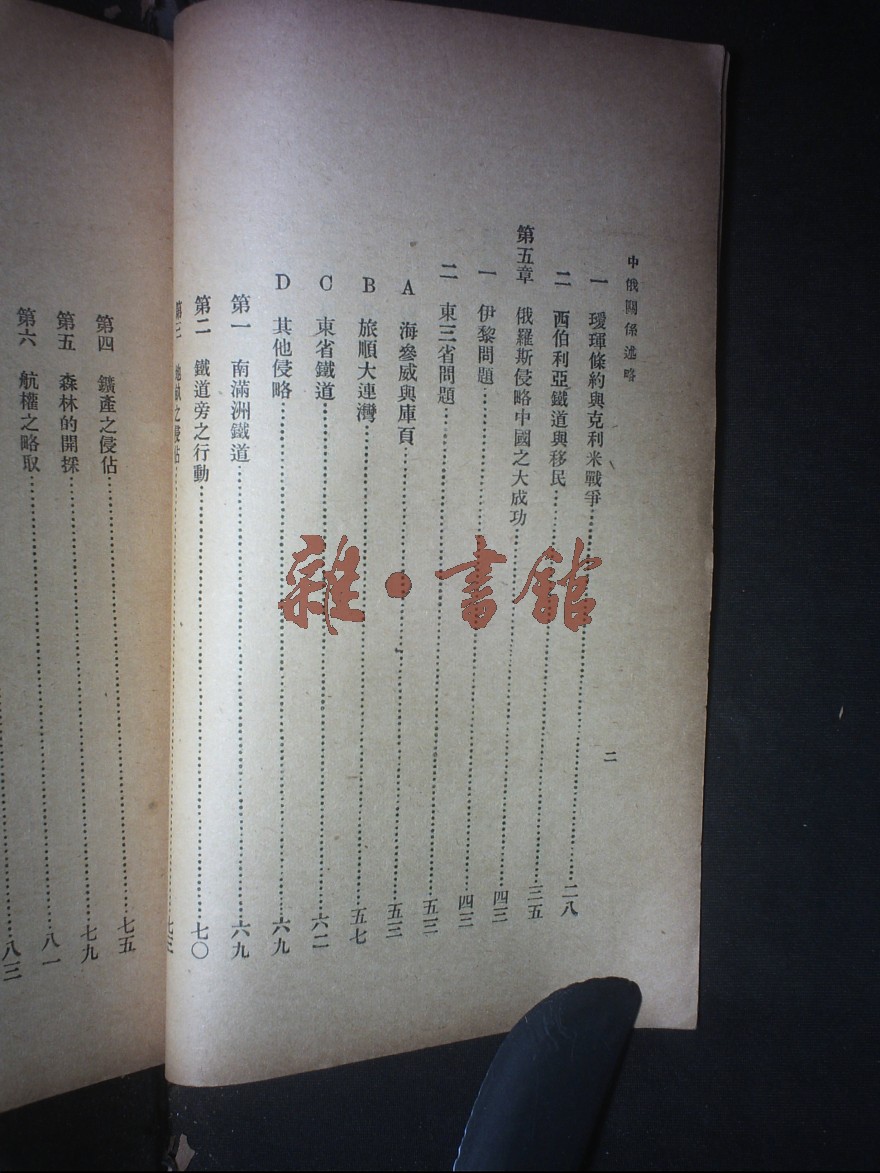 中俄關係述略
二
一 璦琿條約與克利米戰爭……二八
二 西伯利亞鐵道與移民……三五
第五章 俄羅斯侵略中國之大成功……四三
一 伊黎問題……四三
二 東三省問題……五三
A 海參威與庫頁……五三
B 旅順大連灣……五七
C 東省鐵道……六二
D 其他侵略……六九
第一 南滿洲鐵道……六九
第二 鐵道旁之行動……七〇
第三 之侵佔……七三
第四 鑛產之侵佔……七五
第五 森林的開採……七九
第六 航權之略取……八一
八三
雜·書館